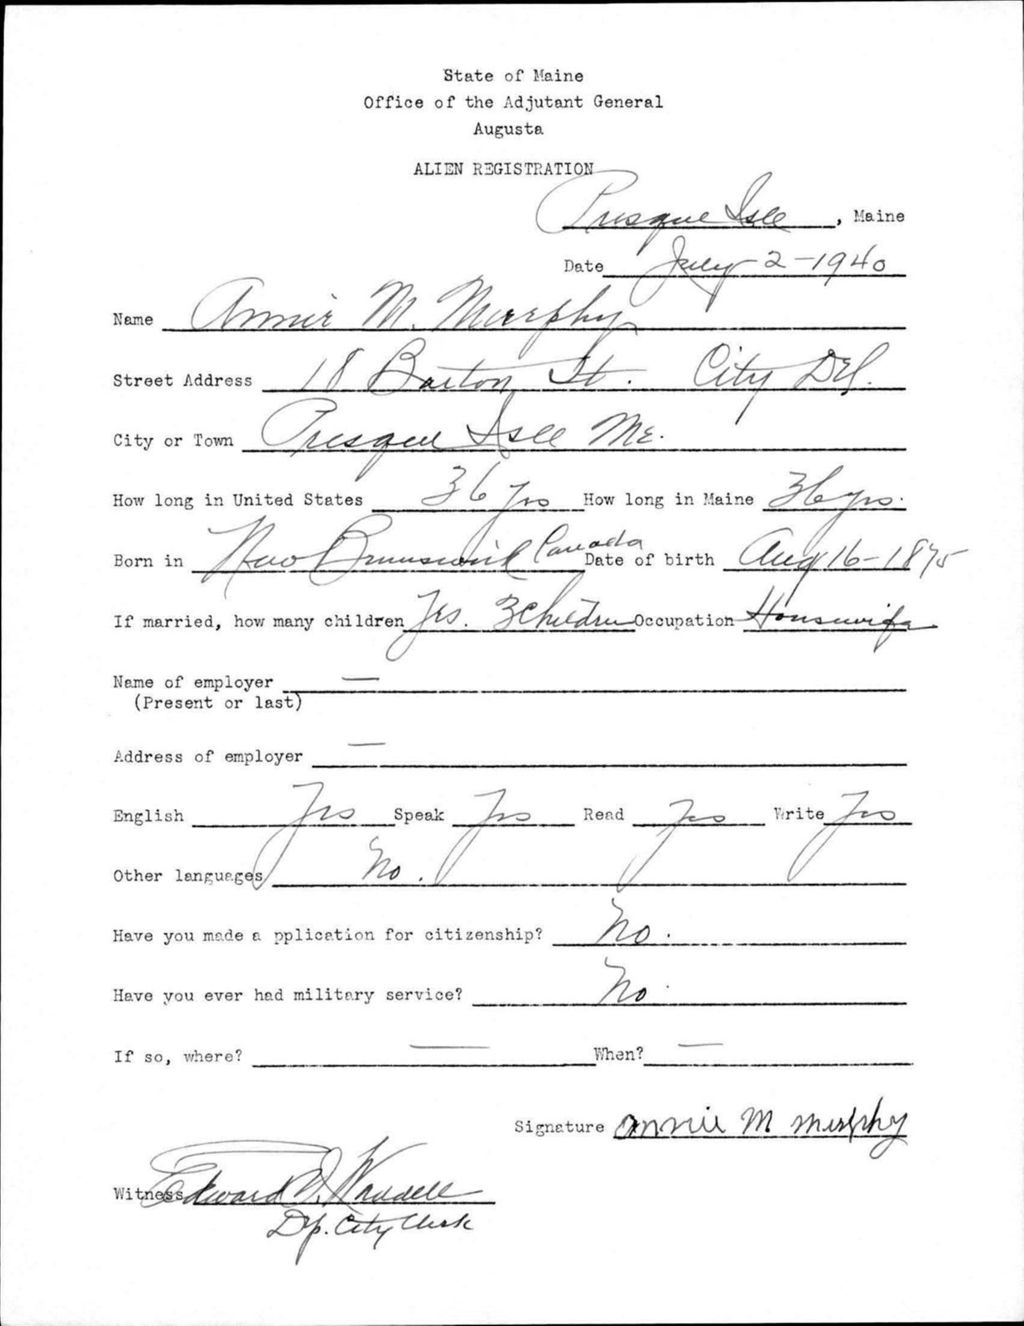 State of Maine
Office of the Adjutant General
Augusta
ALIEN REGISTRATION
Presque Isle, Maine
Date July 2-1940
Name Annie M. Murphy
Street Address 18 Barton St. City Del.
City or Town Presque Isle Me.
How long in United States 36 yrs How long in Maine 36 yrs.
Born in New Brunswick Canada Date of birth Aug 16-1875
If married, how many children Yes. 3 Children Occupation Housewife
Name of employer —
(Present or last)
Address of employer —
English Yes Speak Yes Read Yes Write Yes
Other languages No.
Have you made a pplication for citizenship? No.
Have you ever had military service? No.
If so, where? — When? —
Signature Annie M Murphy
Witness Edward Waddell
Dp. City Clerk